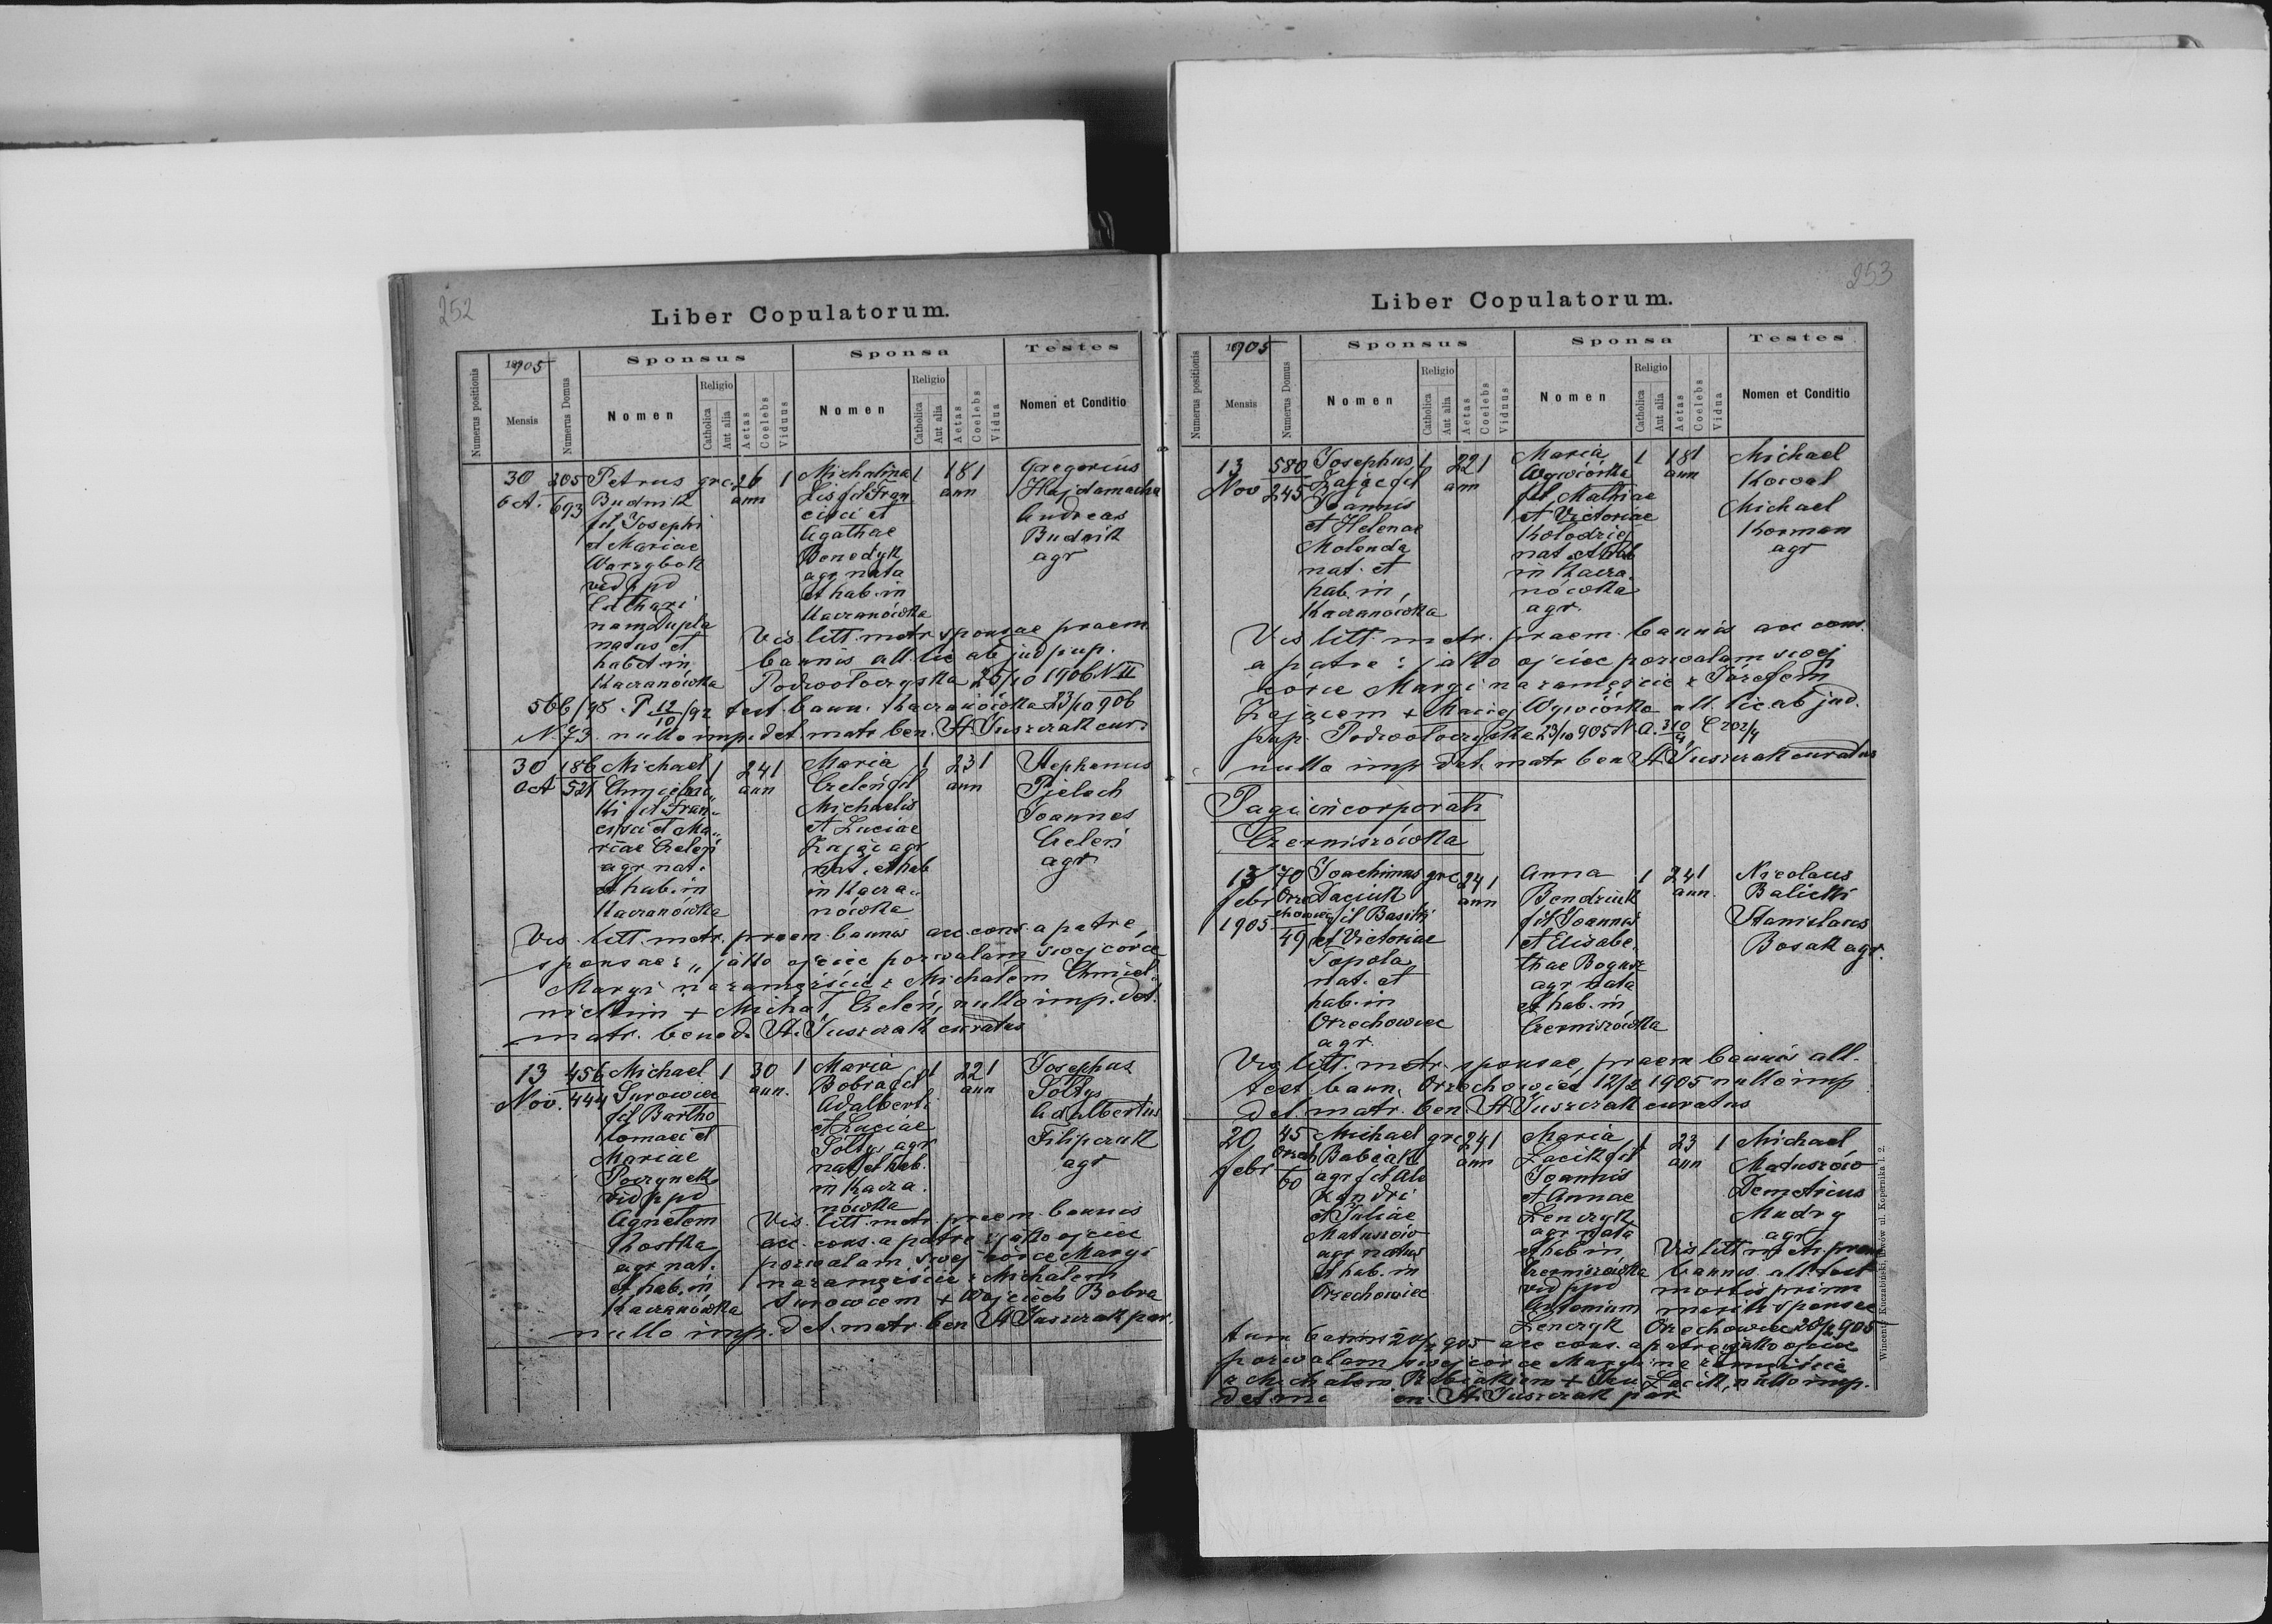 252
Liber Copulatorum.
Numerus positionis
1905
Mensis
Numerus Domus
Sponsus
Nomen
Religio
Catholica
Aut alia
Aetas
Coelebs
Viduus
Sponsa
Nomen
Religio
Catholica
Aut alia
Aetas
Coelebs
Vidua
Testes
Nomen et Conditio
30 205 Petrus grc. 26 1 Michalina 1 18 1 Gregorius
Oct. 693 Budnik ann Lis fil Fran ann Hajdamacha
fil Josephi cisci et Andreas
et Mariae Agathae Budnik
Warzybok Benedyk agr
vid ppd agr nata
et hab. in
Kaczanówka
natus et
hab et in
Kaczanówka
Vis litt. matr. sponsae praem
bannis all. lic ab jud pup.
Podwołoczyska 25/10 1906 N II
566/98 P 12/10/92 test. bann. Kaczanówka 23/10 906
N. 73. nullo imp. det. matr. ben. St Juszczak cur.
30 186 Michael 1 24 1 Maria 1 23 1 Stephanus
Oct 521 ann Celeń fil ann Pielach
ki fil Fran„ Michaelis Joannes
cisci et Ma„ et Luciae Celeń
riae Zając agr agr
agr nat. nat. et hab
et hab. in in Kacza„
Kaczanówka nówka
Vis. litt. matr. praem. bannis acc. cons. a patre
sponsae: „jako ojciec pozwalam swej córce
Maryi na zamęście z Michałem Chmiel„
nickim + Michał Celeń, nullo imp. det.
matr. bened. St. Juszczak curatus
13 456 Michael 1 30 1 Maria 1 22 1 Josephus
Nov. 444 Surowiec ann. Bobra fil ann Sołtys
fil Bartho Adalberti Adalbertus
lomaei et et Luciae Filipczuk
Mariae Sołtys agr agr
Poczynek nat et hab.
vid ppd in Kacza.
Agnetem nówka
Kostka
agr nat.
et hab. in
Kaczanówka
Vis. litt. matr. praem. bannis
acc. cons. a patre: jako ojciec
pozwalam swej córce Maryi
na zamęście z Michałem
Surowcem + Wojciech Bobra
nullo imp. det. matr. ben St Juszczak par.
253
Liber Copulatorum.
Numerus positionis
1905
Mensis
Numerus Domus
Sponsus
Nomen
Religio
Catholica
Aut alia
Aetas
Coelebs
Viduus
Sponsa
Nomen
Religio
Catholica
Aut alia
Aetas
Coelebs
Vidua
Testes
Nomen et Conditio
13 580 Josephus 1 22 1 Maria 1 18 1 Michael
Nov 245 Zając fil ann Wywiórka ann Kowal
Joannis fil Mathiae Michael
et Helenae et Victoriae Korman
Molenda Kołodziej agr
nat. et nat. et hab
hab. in, in Kacza.
Kaczanówka nówka
agr.
Vis litt. matr. praem. bannis acc cons.
a patre: jako ojciec pozwalam swej
córce Maryi na zamęście z Józefem
Zającem + Maciej Wywiórka all. lic. ab jud.
pup. Podwołoczyska 23/10 905
nullo imp. det. matr. ben St Juszczak curatus
Pagi incorporati
Czerniszówka
13 70 Joachimus grc 24 1 Anna 1 24 1 Nicolaus
febr Orze Daciuk ann Bendziuk ann. Balicki
1905 chowiec fil Basilii fil Joannis Stanislaus
49 et Victoriae et Elisabe. Bosak agr.
Topola thae Bogusz
nat. et agr nata
hab. in et hab. in
Orzechowiec Czerniszówka
agr.
Vis litt. matr. sponsae, praem bannis all.
test bann. Orzechowiec 12/2 1905 nullo imp
det matr. ben. St Juszczak curatus
20 45 Michael grc 24 1 Maria 1 23 1 Michael
febr Orzech Babiak ann Łacik fil ann Matuszów
60 agr fil Ale Joannis Demetrius
xandri et Annae Mudry
et Juliae Lenczyk agr
Matuszów agr nata
agr natus et hab in
et hab. in Czerniszówka
Orzechowiec vid ppd
Antonium
Lenczyk
Vis litt matr. praem
bannis. all. test
mortis primi
mariti sponsae
Orzechowiec 20/2 905
tum bannis 20/2 905 acc cons. a patre: jako ojciec
pozwalam swej córce Maryi na zamęście
z Michałem Babiakiem + Łacik, nullo imp.
St. Juszczak par
Wincenty Kuczabiński, Lwów ul. Kopernika l. 2.